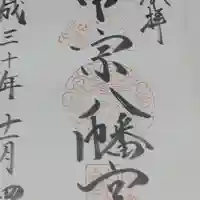 奉拝
宗八幡宮
成三十年十一月四